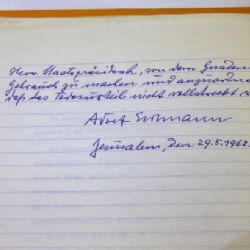 Herr Staatspräsident, von dem Gnaden
Gebrauch zu machen und anzuordnen
daß das Todesurteil nicht vollstreckt
Adolf Eichmann
Jerusalem, den 29.5.1962